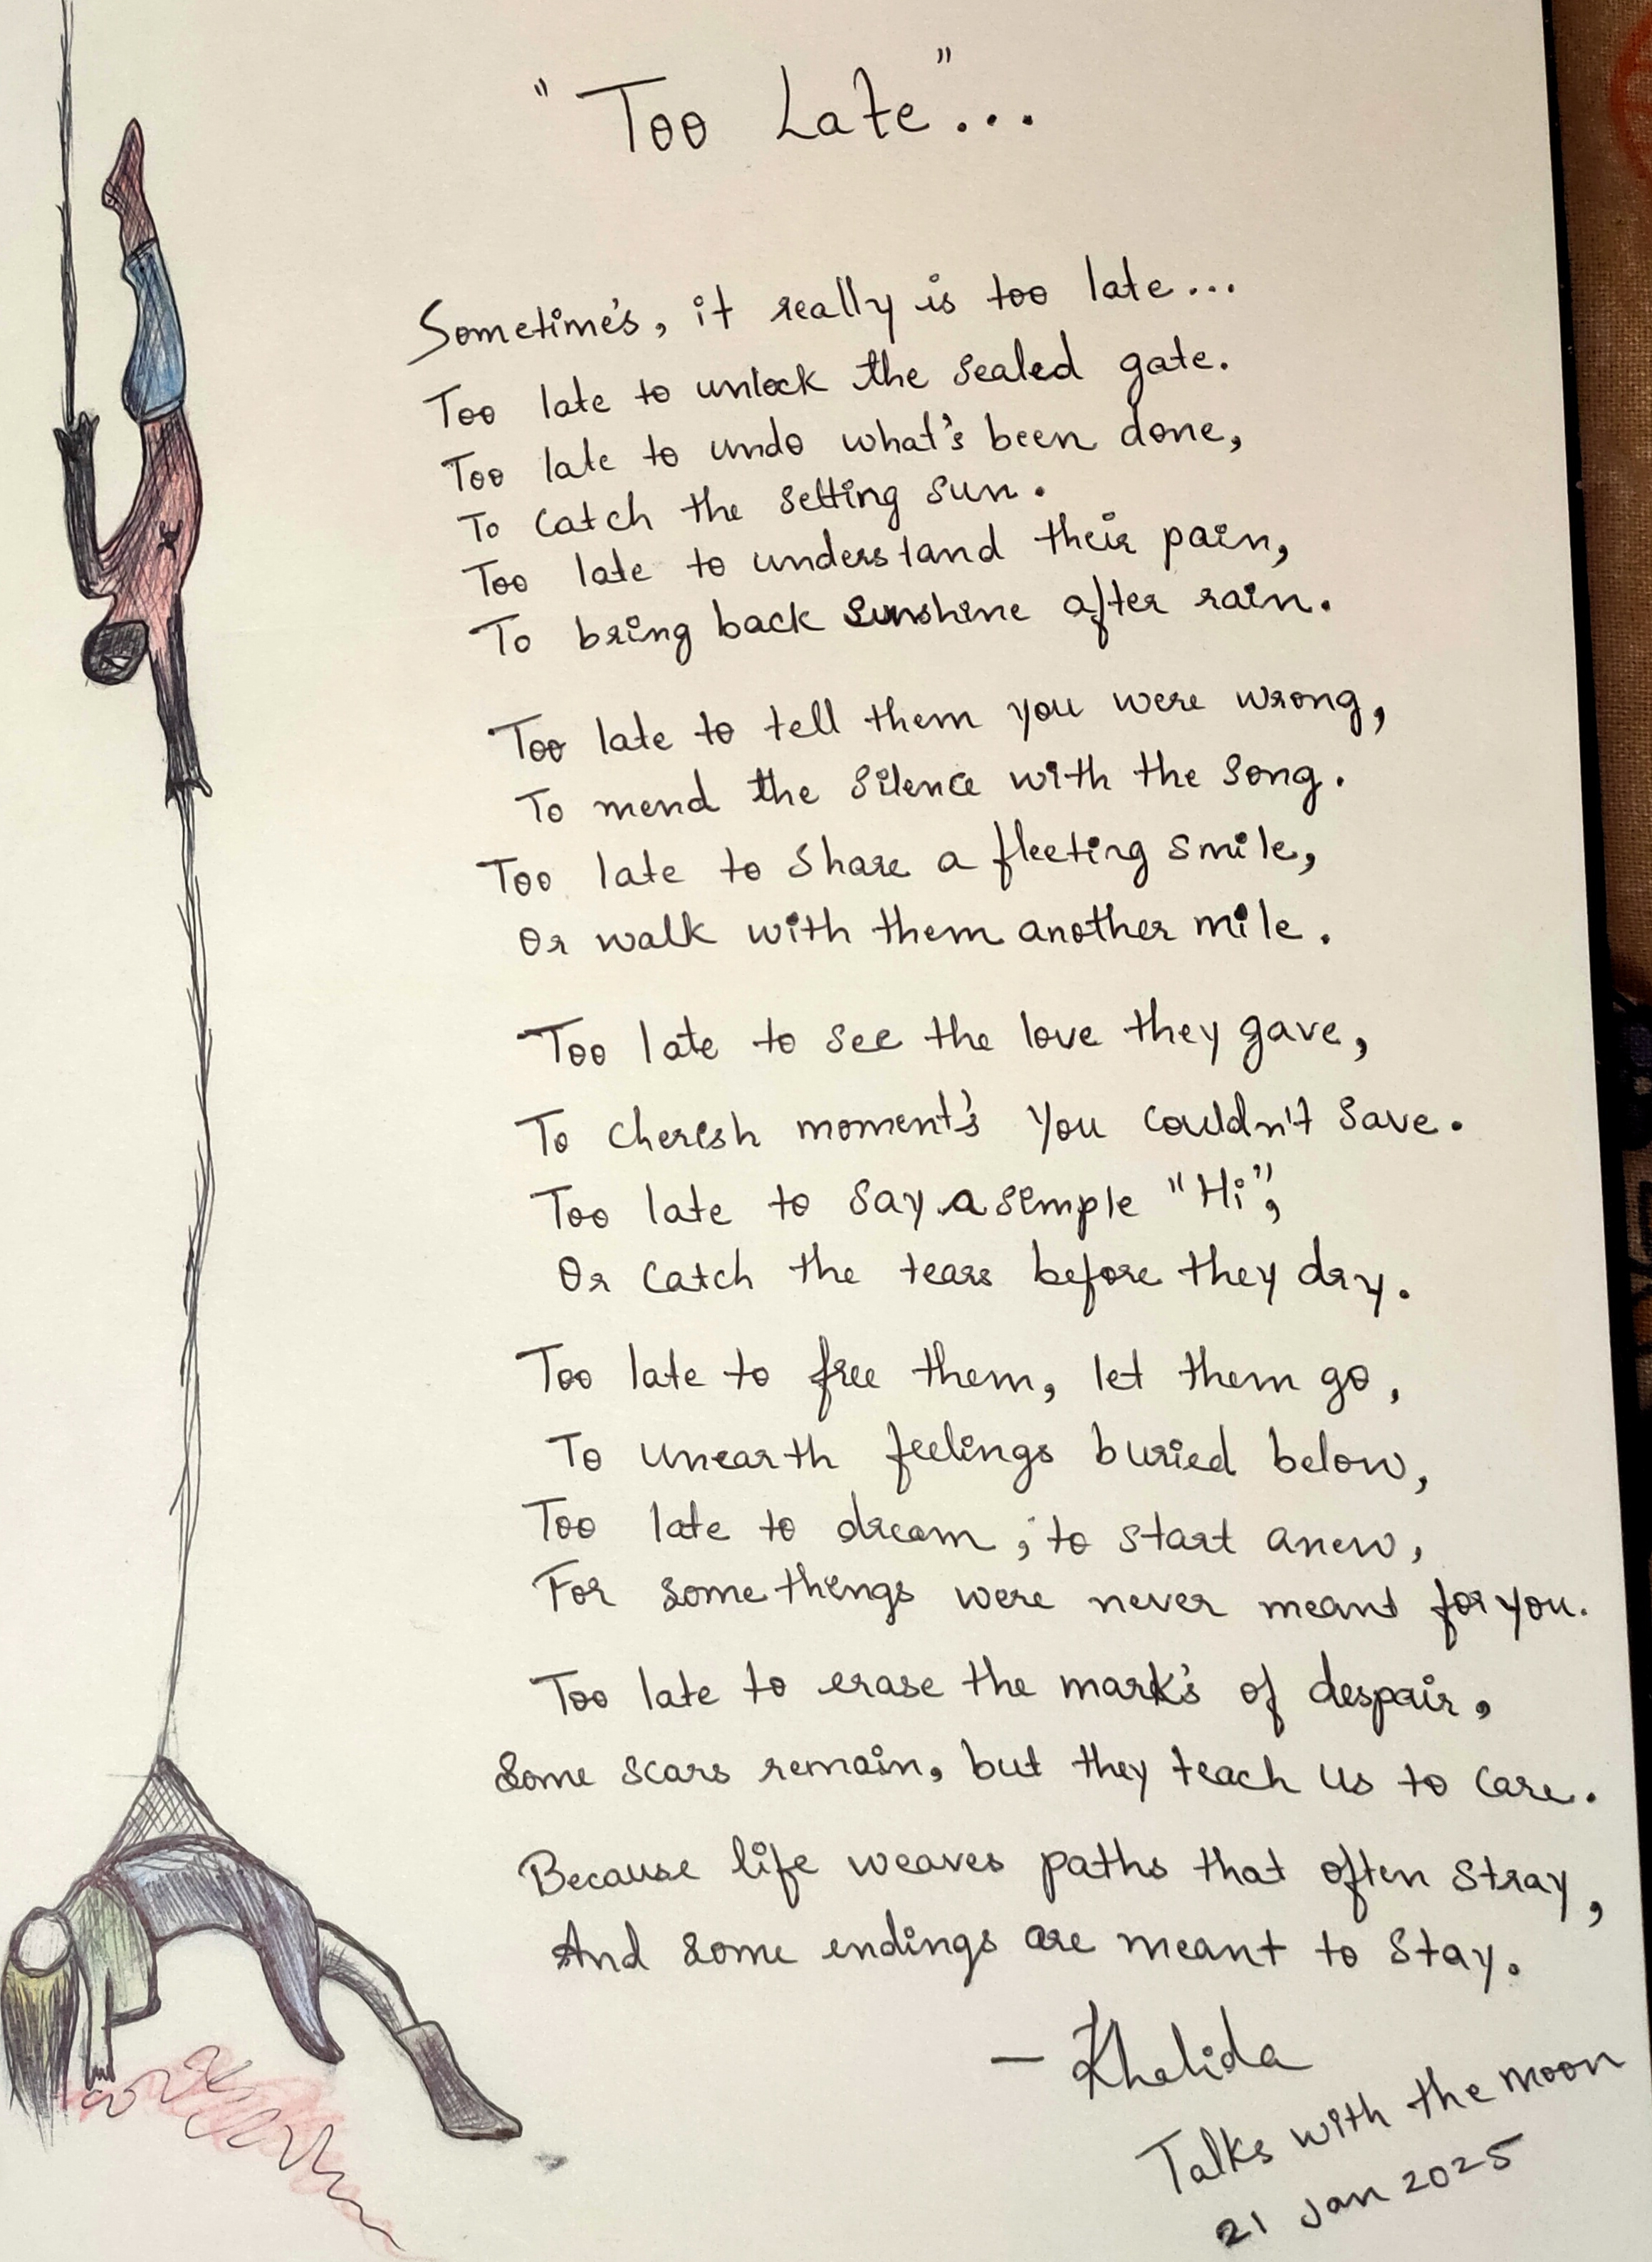 "Too Late"...
Sometime's, it really is too late...
Too late to unlock the sealed gate.
Too late to undo what's been done,
To catch the setting sun.
Too late to understand their pain,
To bring back sunshine after rain.
Too late to tell them you were wrong,
To mend the silence with the song.
Too late to share a fleeting smile,
Or walk with them another mile.
Too late to see the love they gave,
To cherish moment's you couldn't save.
Too late to say a simple "Hi",
Or catch the tears before they dry.
Too late to free them, let them go,
To unearth feelings buried below,
Too late to dream ; to start anew,
For some things were never meant for you.
Too late to erase the mark's of despair,
Some scars remain, but they teach us to care.
Because life weaves paths that often stray,
And some endings are meant to stay.
— Khalida
Talks with the moon
21 Jan 2025